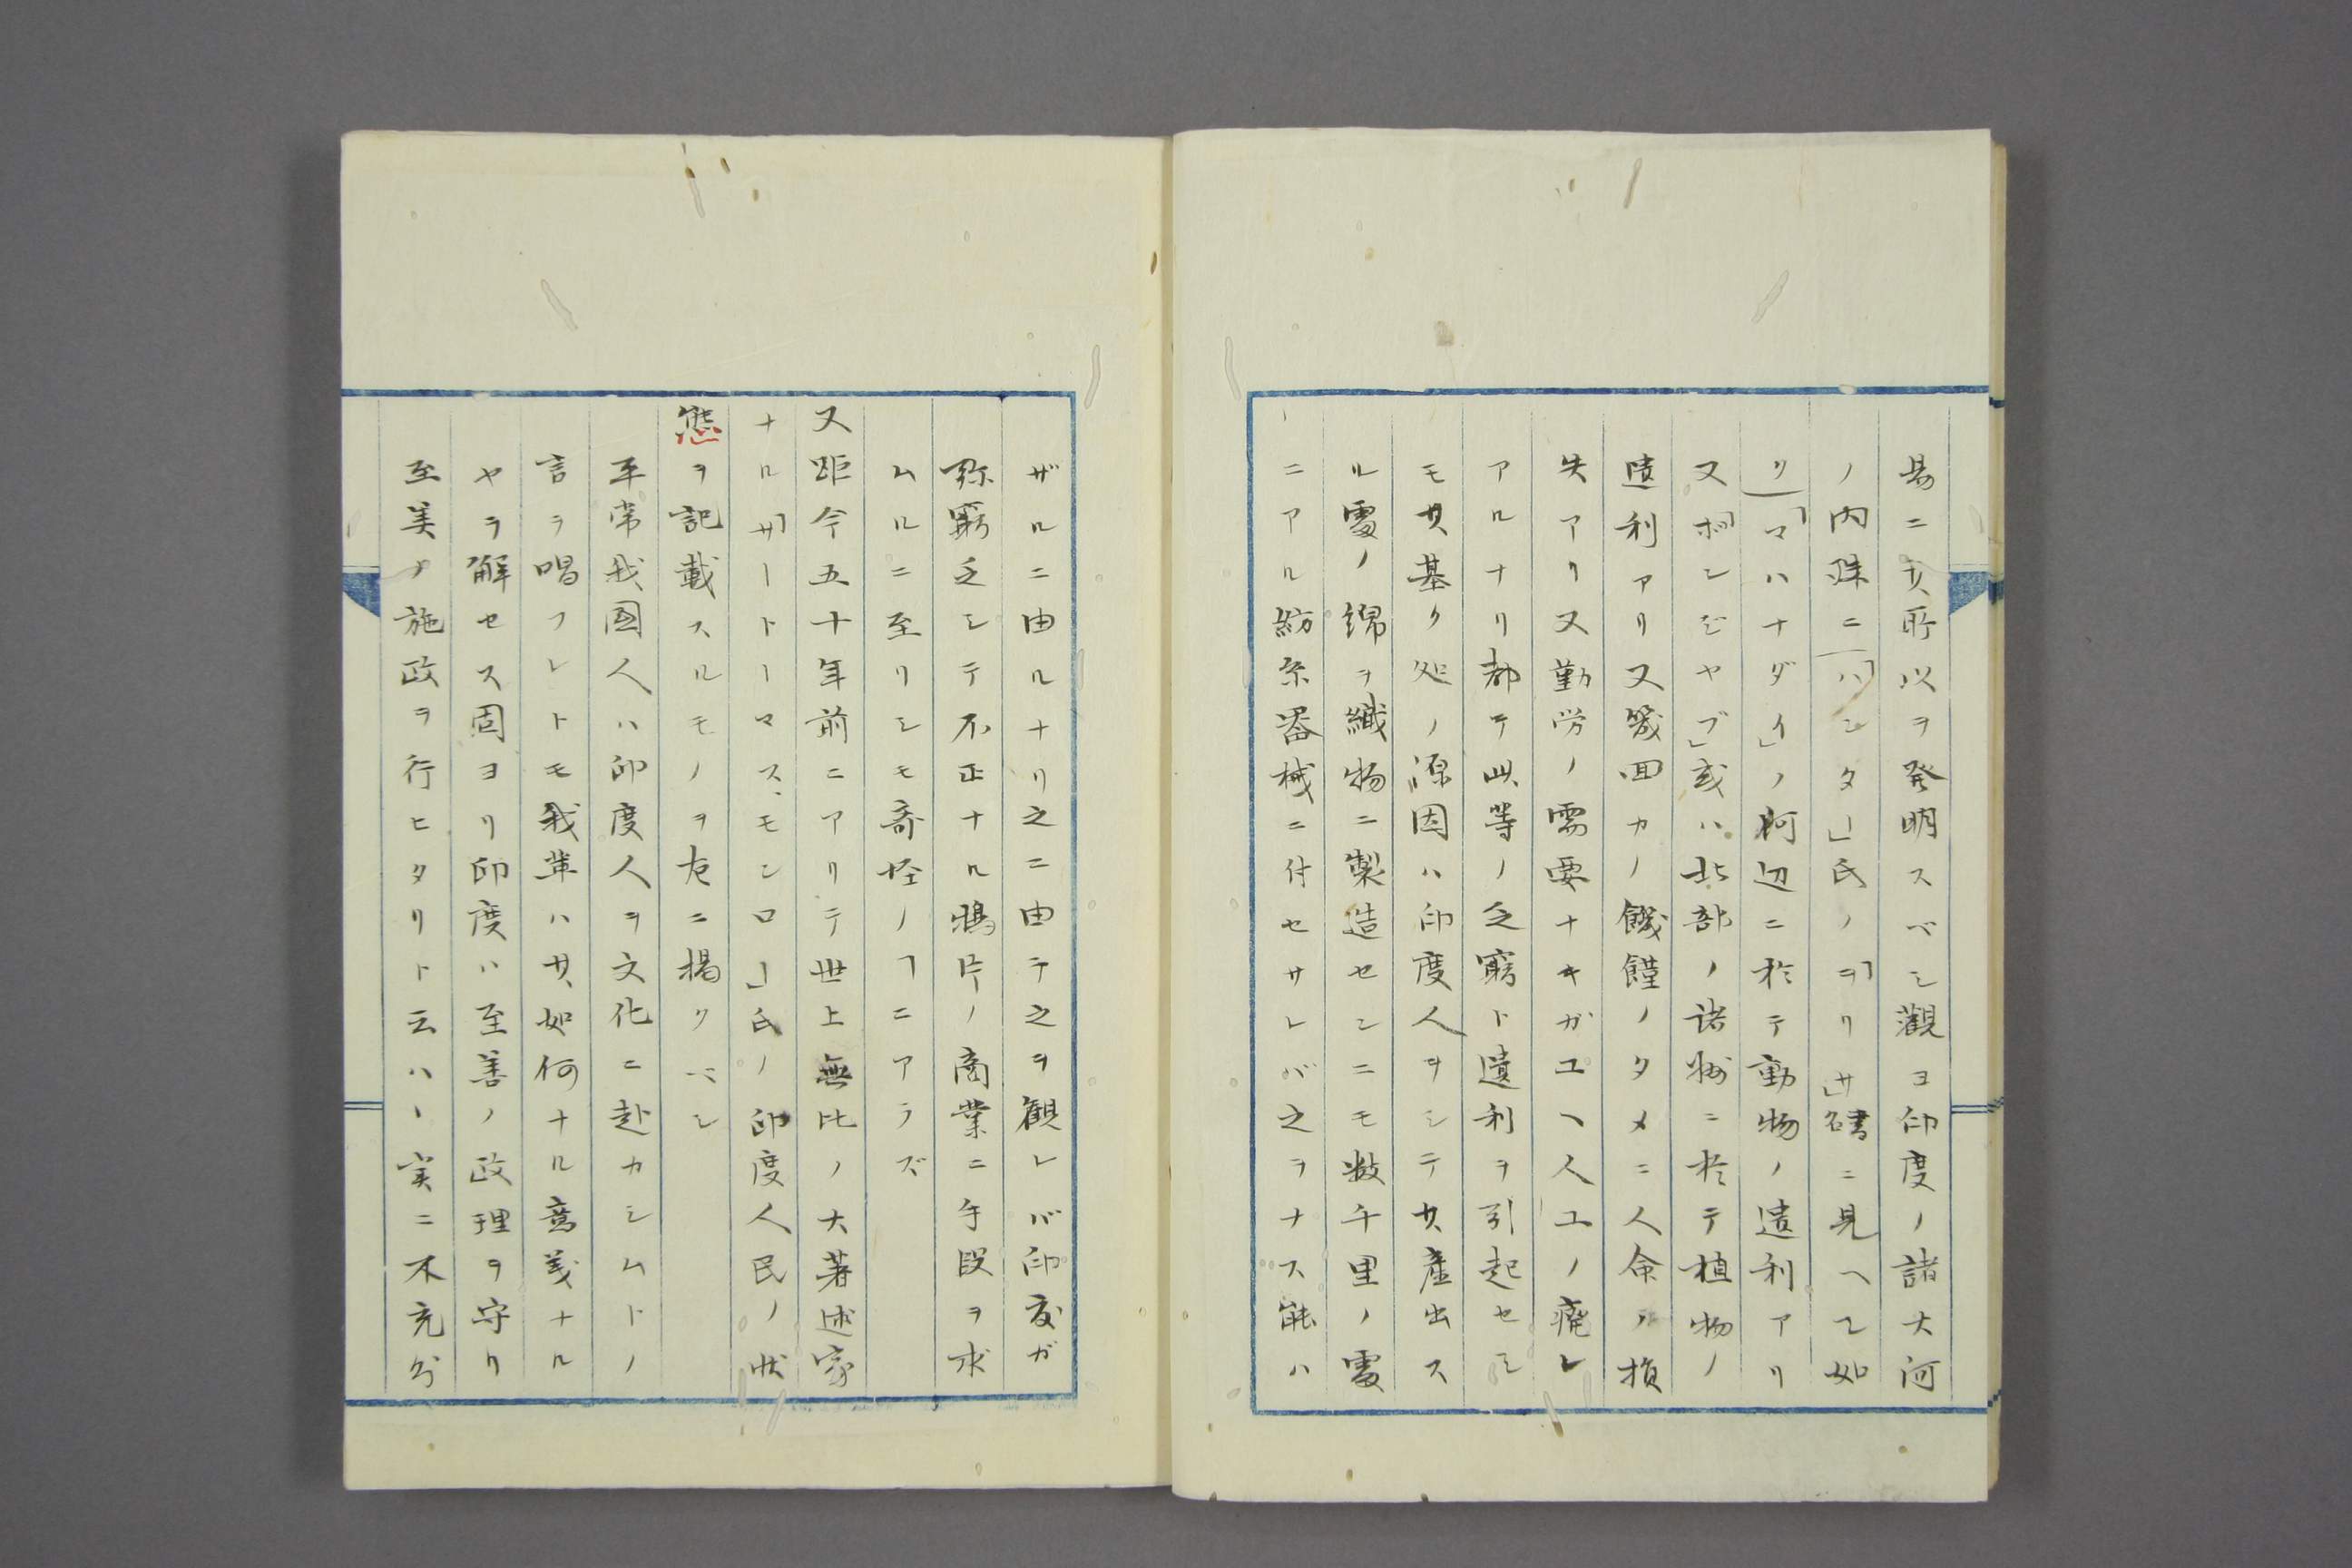 易ニ其所以ヲ発明スベシ觀ヨ印度ノ諸大河
ノ内殊ニ「ハンタ」氏ノ「ヲリサ」書ニ見ヘテ如
リ「マハナダイ」ノ河辺ニ於テ動物ノ遺利アリ
又「ボンジヤブ」或ハ北部ノ諸州ニ於テ植物ノ
遺利アリ又幾回カノ饑饉ノタメニ人命ノ損
失アリ又勤労ノ需要ナキガユヘ人工ノ廃レ
アルナリ都テ此等ノ乏窮ト遺利ヲ引起セシ
モ其基ク処ノ源因ハ印度人ヲシテ其産出ス
ル處ノ綿ヲ織物ニ製造センニモ数千里ノ處
ニアル紡糸器械ニ付セサレバ之ヲナス能ハ
ザルニ由ルナリ之ニ由テ之ヲ観レバ印度ガ
弥窮乏シテ不正ナル鴉片ノ商業ニ手段ヲ求
ムルニ至リシモ奇怪ノヿニアラズ
又距今五十年前ニアリテ世上無比ノ大著述家
ナル「サートーマス、モンロー」氏ノ印度人民ノ状
態ヲ記載スルモノヲ左ニ掲クベシ
平常我國人ハ印度人ヲ文化ニ赴カシムトノ
言ヲ唱フレトモ我輩ハ其如何ナル意義ナル
ヤヲ解セス固ヨリ印度ハ至善ノ政理ヲ守リ
至美ノ施政ヲ行ヒタリト云ハヽ実ニ不充分